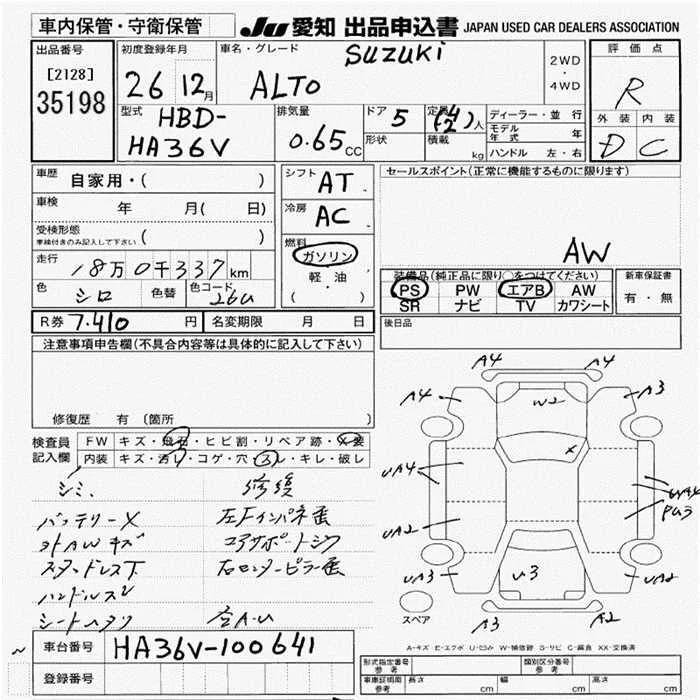 車内保管・守衛保管
JU 愛知 出品申込書 JAPAN USED CAR DEALERS ASSOCIATION
出品番号
[2128]
35198
初度登録年月
26 12月
車名・グレード
SUZUKi
ALTO
2WD
・
4WD
評価点
R
外装 内装
D C
型式
HBD-
HA36V
排気量
0.65cc
ドア 5
形状
定員 (4/2)人
積載 kg
ディーラー・並行
モデル年式 年
ハンドル 左・右
車歴 自家用・( )
車検 年 月( 日)
受検形態
車検付きのみ記入して下さい ( )
走行 18万0千337km
色 シロ 色替 色コード 26U
R券 7.410 円 名変期限 月 日
シフト AT
冷房 AC
燃料
ガソリン
軽・油
( )
セールスポイント(正常に機能するものに限ります)
AW
装備品(純正品に限り○をつけてください)
PS PW エアB AW
SR ナビ TV カワシート
新車保証書
有・無
後日品
注意事項申告欄(不具合内容等は具体的に記入して下さい)
修復歴 有 (箇所 )
検査員
記入欄
FW キズ・飛石・ヒビ割・リペア跡・X要
内装 キズ・汚・コゲ・穴・スレ・キレ・破レ
シミ、 修復
バッテリーX 左Fインパネ歪
ヨトAWキズ コアサポートシワ
スタッドレス下 右センターピラー歪
ハンドルスレ
シート
各A・U
A4 A4
A4 A3
W2
X
UA4 UA4
PU3
UA2
UA3 U3 UA2
A3 A2
スペア
A-キズ E-エクボ U-凹み W-補修跡 S-サビ C-腐食 XX-交換済
車台番号 HA36V-100641
登録番号
形式指定番号
参考
類別区分番号
参考
車庫証明用
参考
長さ cm 幅 cm 高さ cm